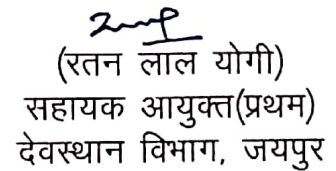 (रतन लाल योगी)
सहायक आयुक्त(प्रथम)
देवस्थान विभाग, जयपुर